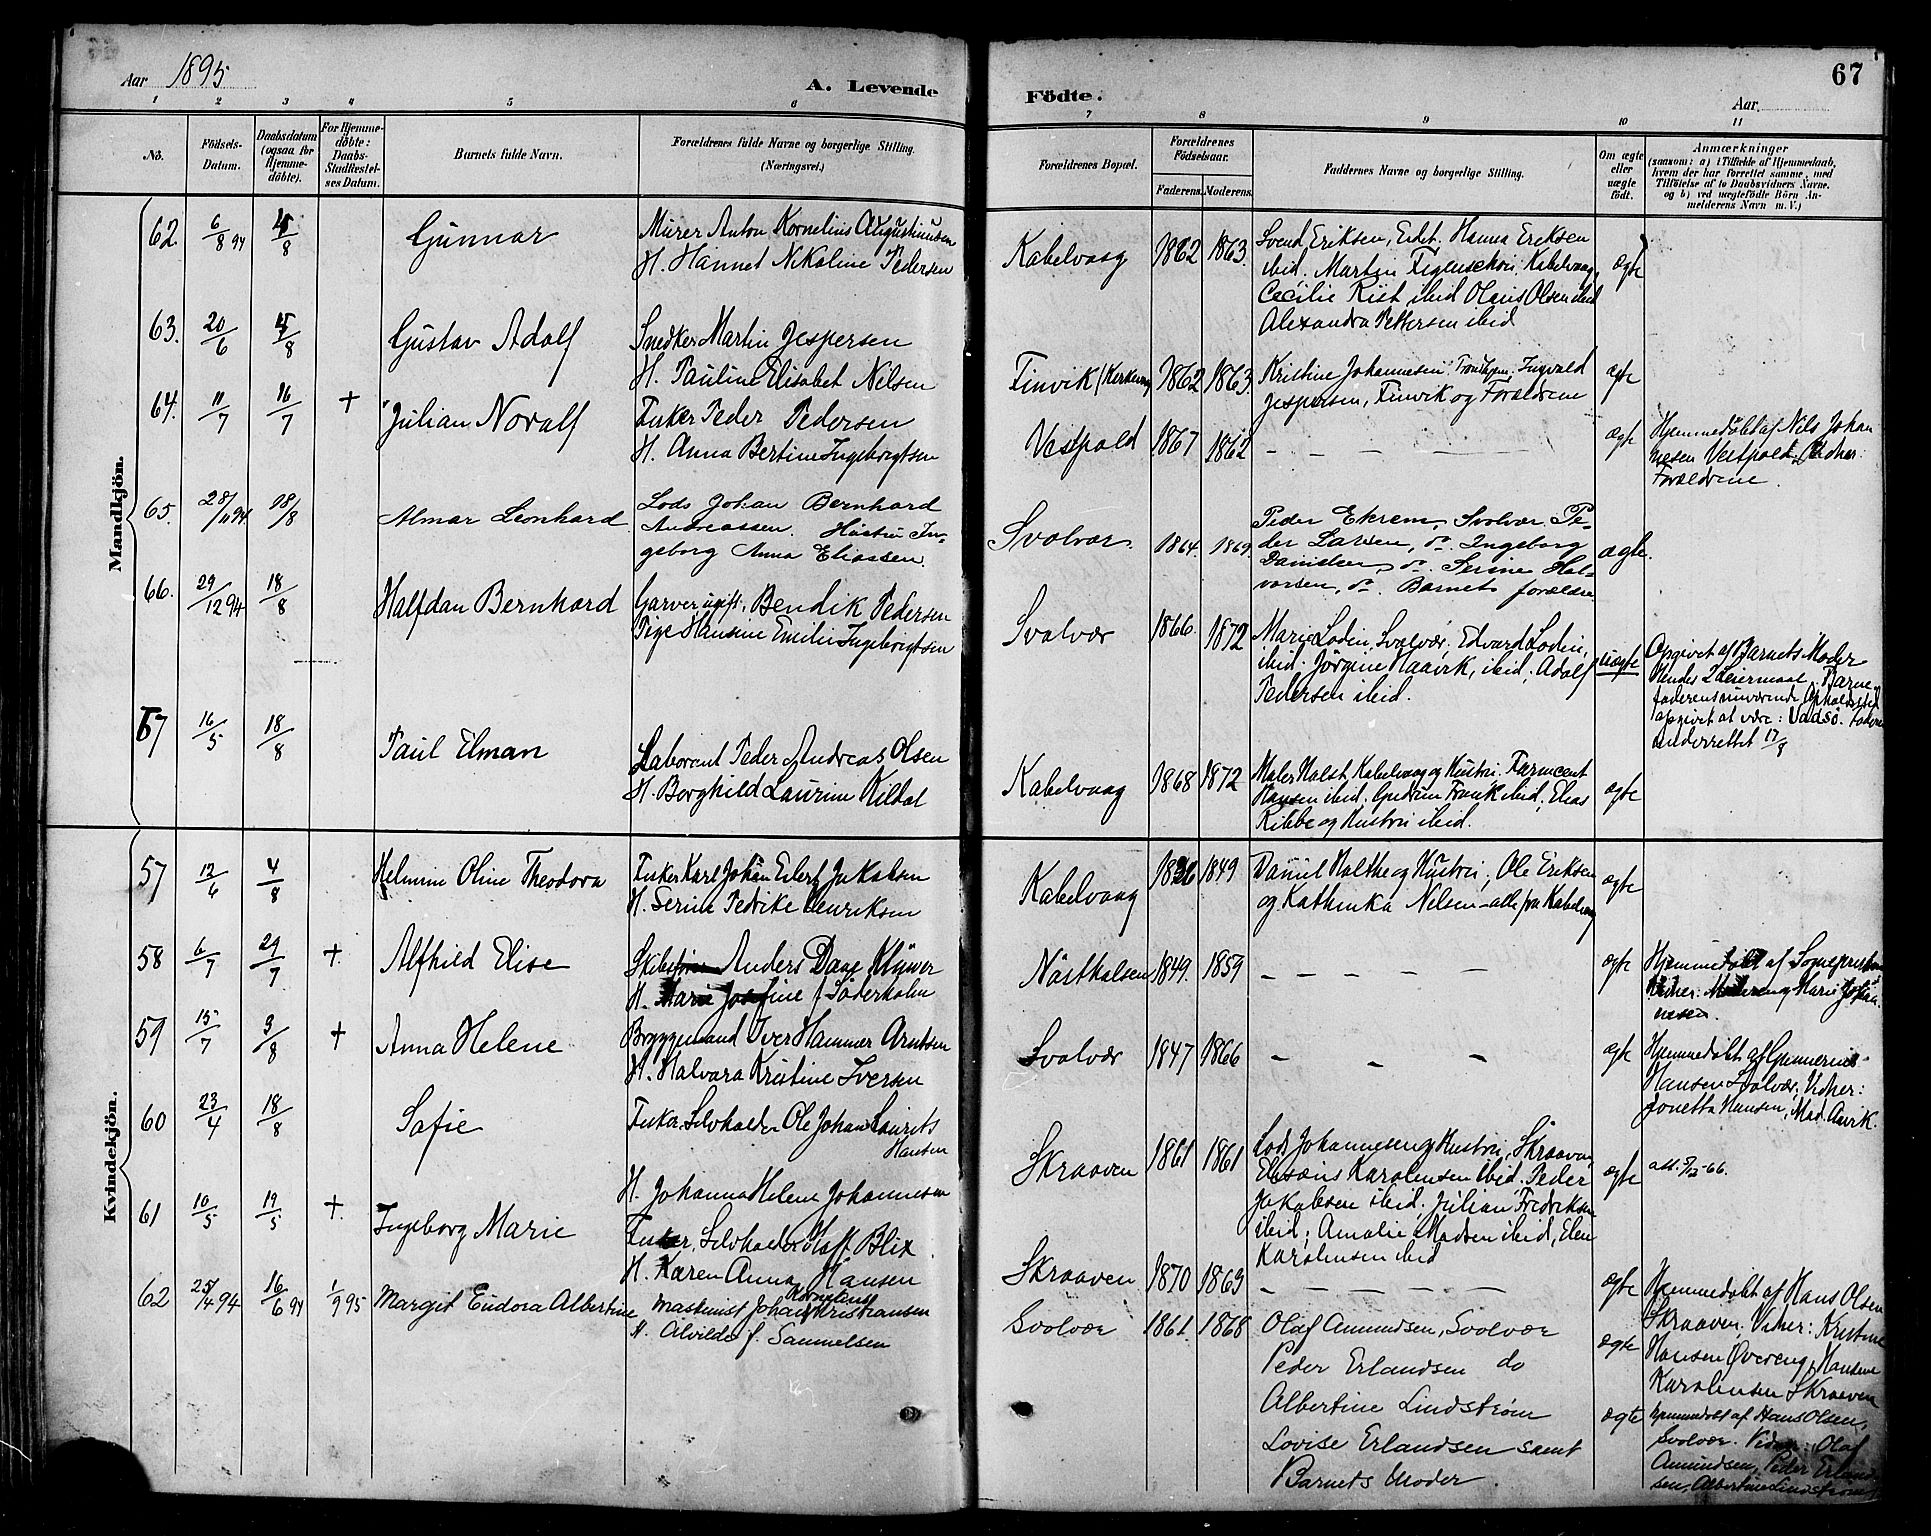 67
Aar 1895
A. Levende
Födte.
Aar
1 2 3 4 5 6 7 8 9 10 11
No.
Födsels-
Datum.
Daabsdatum
(ogsaa for
Hjemme-
döbte).
For Hjemme-
döbte:
Daabs-
Stadfæstel-
ses Datum.
Barnets fulde Navn.
Forældrenes fulde Navne og borgerlige Stilling.
(Næringsvei.)
Forældrenes Bopæl.
Forældrenes
Födselsaar.
Faderens. Moderens.
Faddernes Navne og borgerlige Stilling.
Om ægte
eller
uægte
født.
Anmærkninger
(saasom: a) i Tilfælde af Hjemmedaab,
hvem der har forrettet samme, med
Tilföielse af to Daabsvidners Navne.
og b) ved uægtefödte Börn An-
melderens Navn m.V.)
Mandkjön.
62. 6/8 94 4/8 Gunnar
Murer Anton Kornelius Augustinusen
H. Hannet Nikoline Pedersen
Kabelvaag 1862 1863.
Svend Eriksen, Hanna Eriksen
ibid. Martin Kabelvaag,
Cecilie Riit ibid Olaus Olsen ibid
Alexandra Pettersen ibid
ægte
63. 20/6 4/8 Gustav Adolf
Snedker Martin Jespersen
H. Pauline Elisabet Nilsen
Finvik (Kirkevaag 1862 1863.
Kristine Johannesen, Trondhjem, Ingvald
Jespersen, Finvik og Forældrene
ægte
64. 11/7 16/7 + Julian Noralf
Fisker Peder Pedersen
H. Anna Bertine Ingebrigtsen
Vestpold 1867 1862
– – – – –
ægte
Hjemmedöbt af Nils Johan
nesen Vestpold. Vidner:
Forældrene.
65. 28/11 94 18/8 Almar Leonhard
Lods Johan Bernhard
Andreassen. Hustru In-
geborg Anna Eliassen.
Svolvær. 1864. 1869.
Peder Ekrem, Svolvær Pe-
der Larsen, do. Ingeborg
Danielsen do. Serine Hal-
vorsen, do. Barnets forældre
ægte.
66. 29/12 94 18/8 Halfdan Bernhard
Garver, ugift, Bendik Pedersen
Pige Hansine Emilie Ingebrigtsen
Svolvær 1866. 1872
Marie Lodin, Svolvær, Edvard Lodin,
ibid. Jörgine Haavik, ibid, Adolf
Pedersen ibid.
uægte
Opgivet af Barnets Moder
Hendes 2 Leiermaal. Barne-
faderens nuværende Opholdssted
opgivet at være: Vadsö. Faderen
Underrettet 17/8
67 16/5 18/8 Paul Elman
Laborant Peder Andreas Olsen
H. Borghild Laurine Kildal
Kabelvaag 1868 1872
Maler Holst Kabelvaag og Hustru. Farmaceut
Hansen ibid. Gudrun Frank ibid. Elias
Ribbe og Hustru ibid.
ægte
Kvindekjön.
57 12/6 4/8 Helmine Oline Theodora
Fisker Karl Johan Edert Jakobsen
H. Serine Fedrike Henriksen
Kabelvaag 1849
Daniel Holthe og Hustru, Ole Eriksen
og Kathinka Nelsen – alle fra Kabelvaag
ægte
58 6/7 29/7 +. Alfhild Elise
Anders Daae Klüwer
H. Marie Josefine f Söderholm
Nösthalsen 1849. 1859
– – – – –
ægte
Hjemmedöbt af Sognepresten
Vidner: Moderen og Marie Johan
nesen.
59 15/7 3/8 + Anna Helene
Bryggemand Iver Hammer Arntsen
H. Halvara Kristine Iversen
Svolvær 1847 1866
– – –
ægte
Hjemmedöbt af
Hansen Svolvær, Vidner:
Jonetta Hansen, Mad. Anvik.
60 23/4 18/8 Sofie
Fisker, Selvholder Ole Johan Laurits
Hansen
H. Johanna Helene Johannesen
Skraaven 1861 1861
Lods Johannesen og Hustru, Skraaven,
Elisæus Karolensen ibid. Peder
Jakobsen ibid. Julian Fredriksen
ibid; Amalie Madsen ibid, Elen
Karolensen ibid
ægte
61 10/5 19/5 +. Ingeborg Marie
Fisker, Selvholder Olaff Blix
H. Karen Anna Hansen
Skraaven 1870 1863
– – – – –
ægte
Hjemmedöbt af Hans Olsen
Skraaven, Vidner: Kristine
Hansen Övereng, Hansine
Karolensen Skraaven
62 25/4 94 16/6 94 1/9 95 Margit Eudora Albertine
Maskinist Johan Kornelius Kristiansen
H. Alvilde f. Samuelsen
Svolvær 1861. 1868
Olaf Amundsen, Svolvær
Peder Erlandsen do
Albertine Lindstrøm
Lovise Erlandsen samt
Barnets Moder.
ægte
ægte
Hjemmedöbt af Hans Olsen,
Svolvær. Vidner: Olaf
Amundsen, Peder Erland-
sen, Albertine Lindstrøm